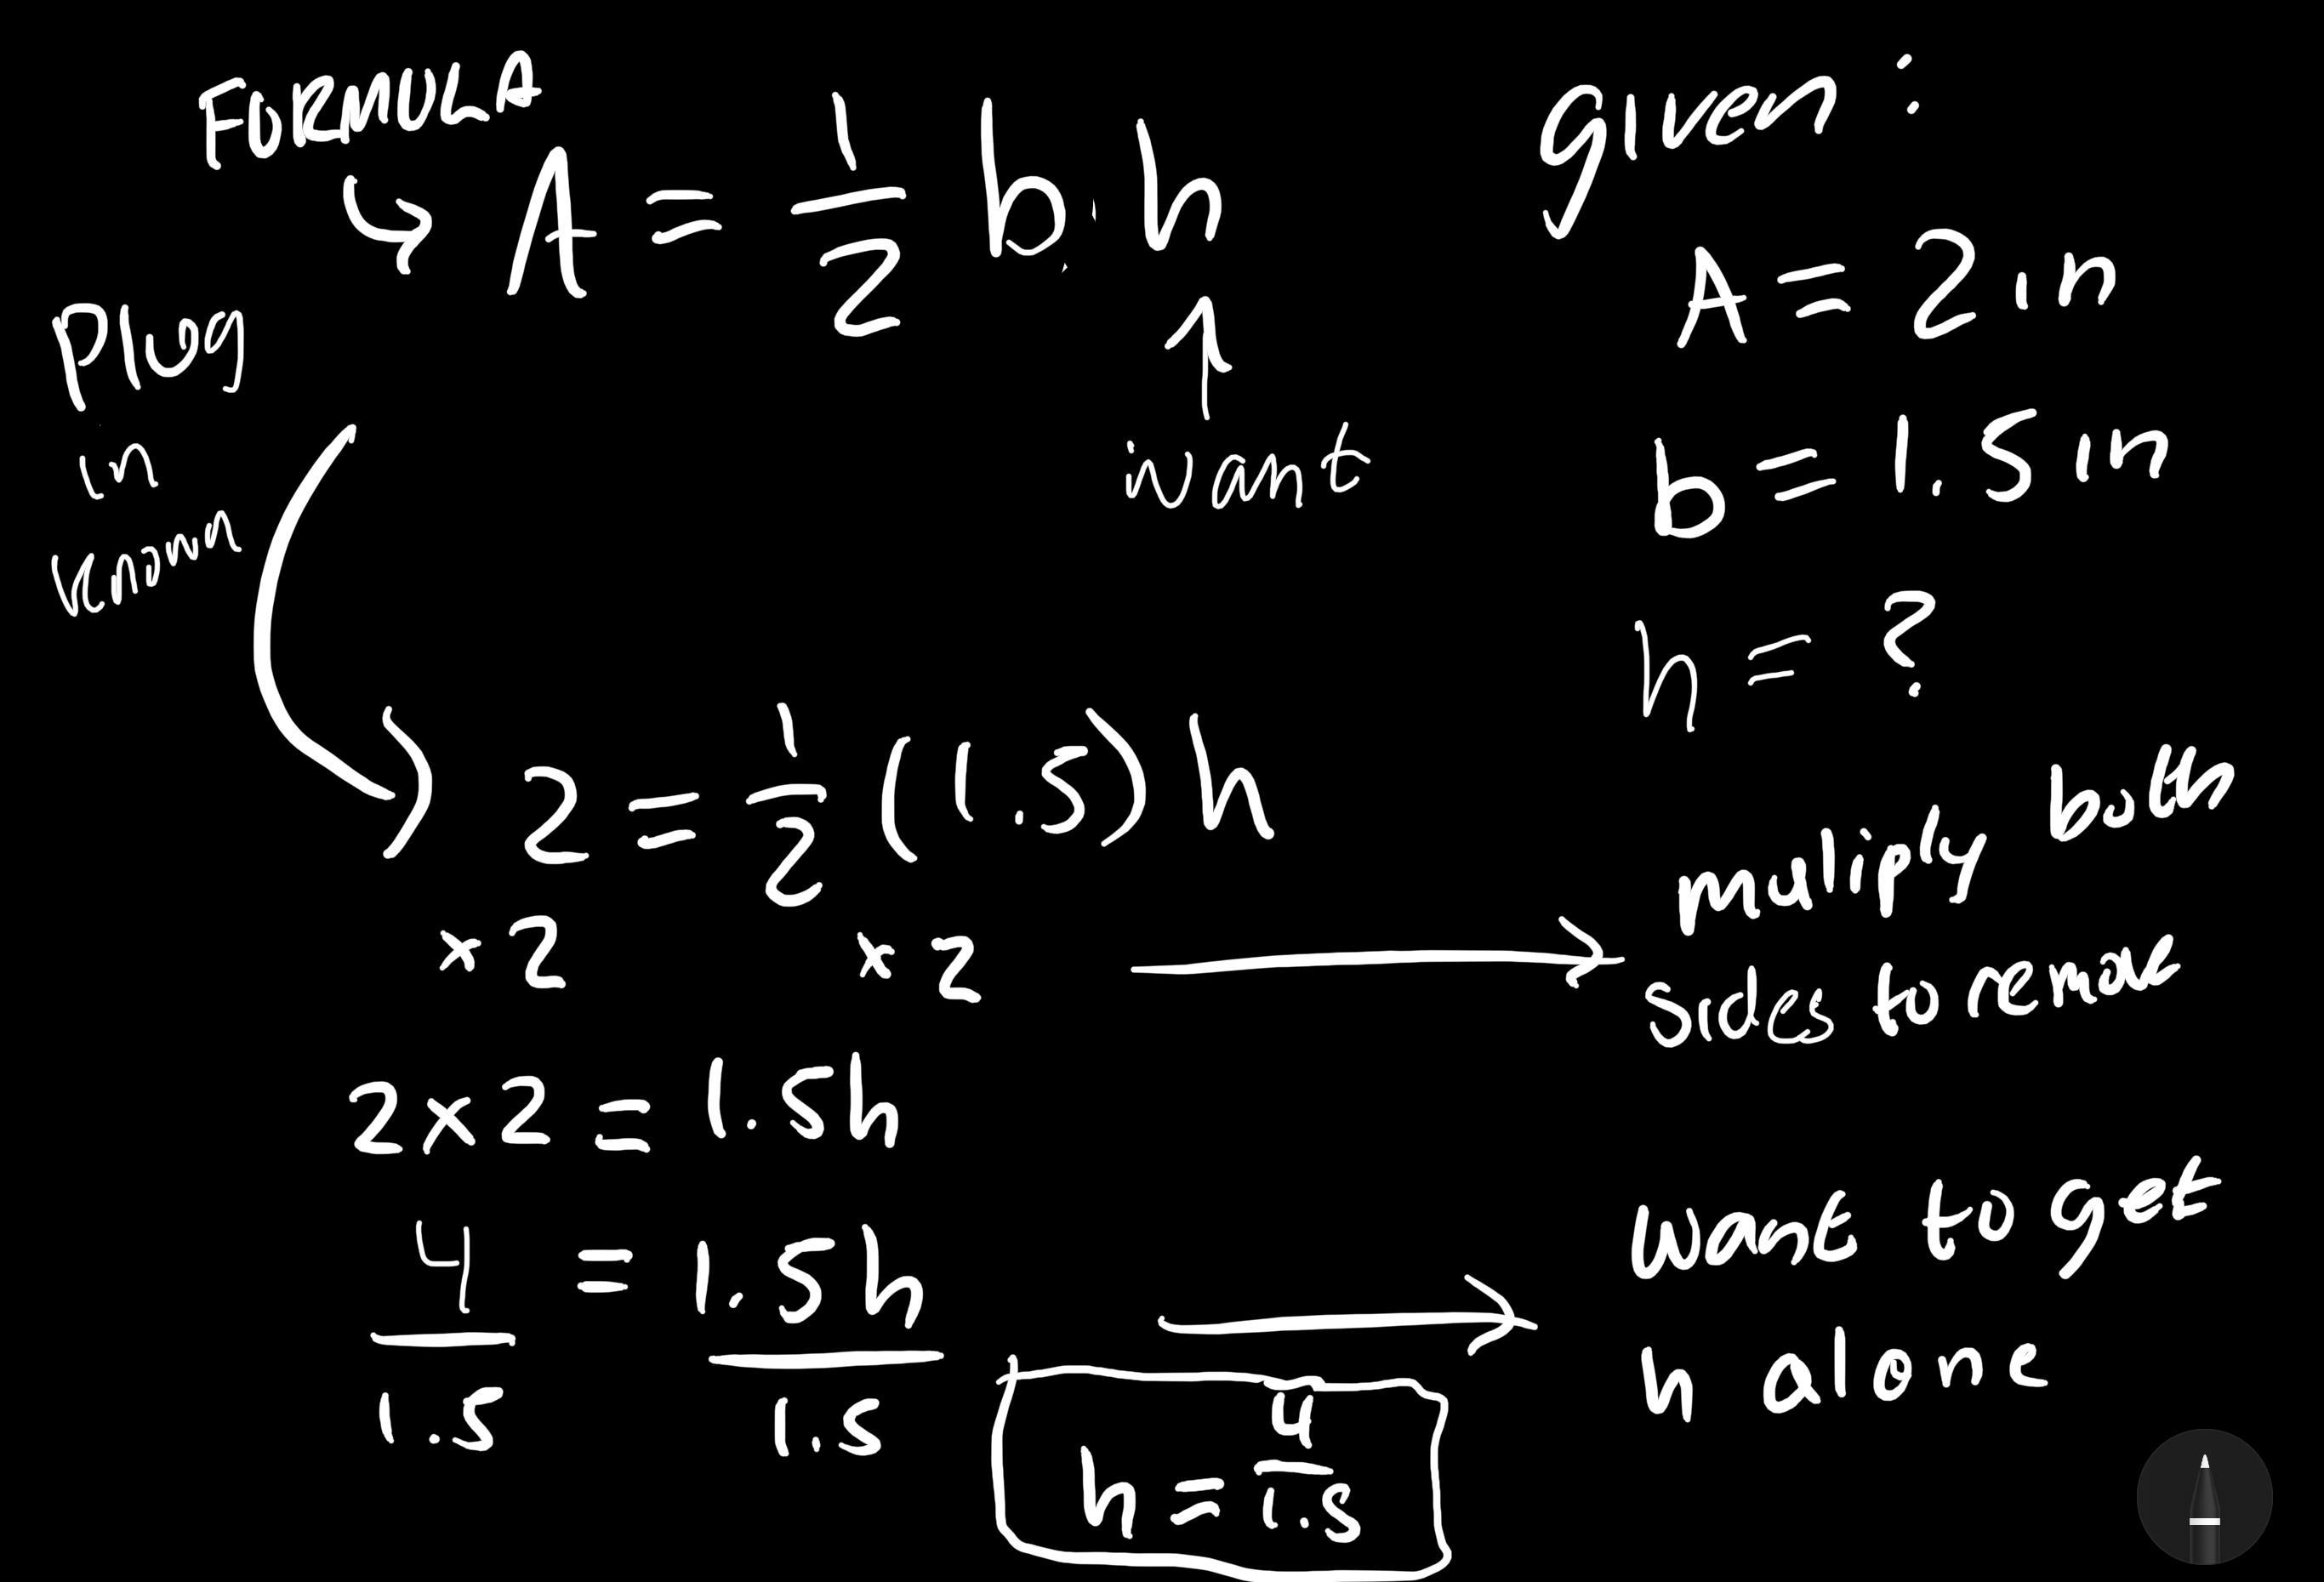 FORMULA
A = 1/2 b · h
want
given :
A = 2 in
b = 1.5 in
h = ?
plug
in
known
2 = 1/2 (1.5) h
×2 ×2
muliply both
sides to remove
2×2 = 1.5h
4/1.5 = 1.5h/1.5
want to get
h alone
h = 4/1.5